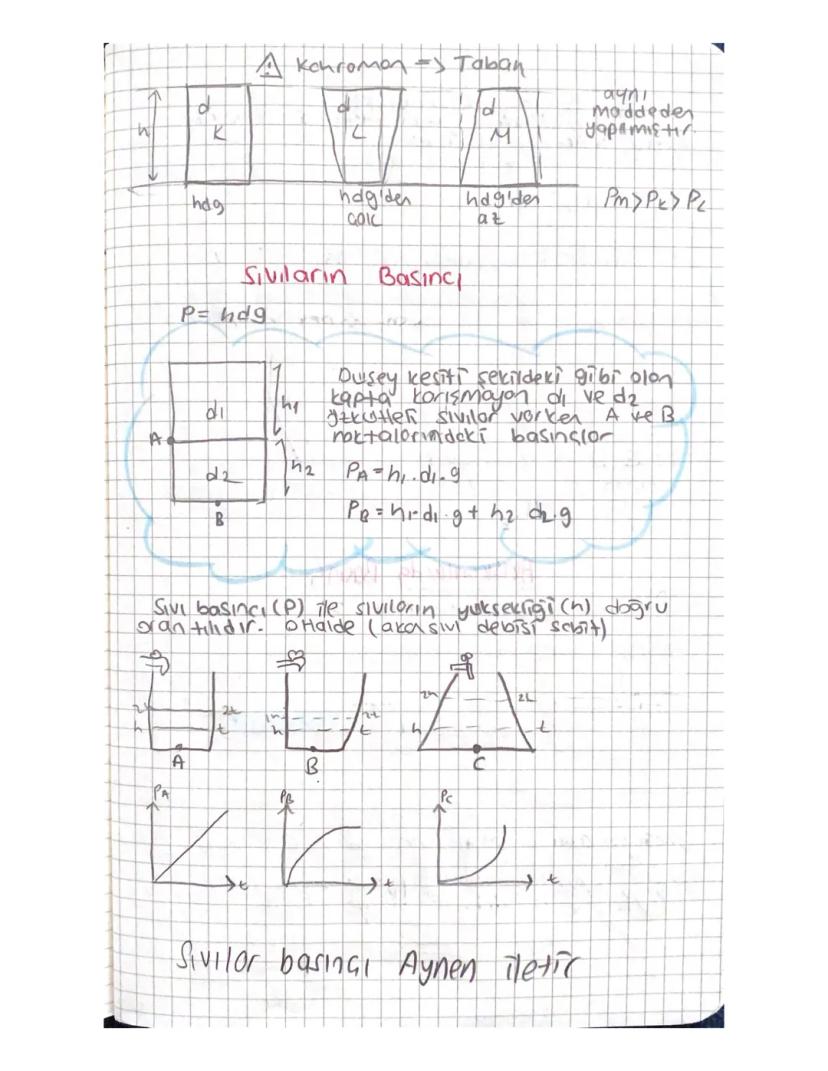 ⚠ Kahraman => Taban
h d K d L d M
aynı
maddeden
yapılmıştır.
hdg hdg'den hdg'den Pm>Pk>PL
çok az
Sıvıların Basıncı
P= hdg
Düşey kesiti şekildeki gibi olan
kapta karışmayan d1 ve d2
özkütleli sıvılar varken A ve B
noktalarındaki basınçlar
d1 h1
A
d2 h2
B
PA = h1.d1.g
PB = h1.d1.g + h2 d2.g
Sıvı basıncı (P) ile sıvıların yüksekliği (h) doğru
orantılıdır. O Halde (akan sıvı debisi sabit)
2t 2t 2h 2t
h t h t h t
A B C
PA PB PC
t t t
Sıvılar basıncı Aynen iletir